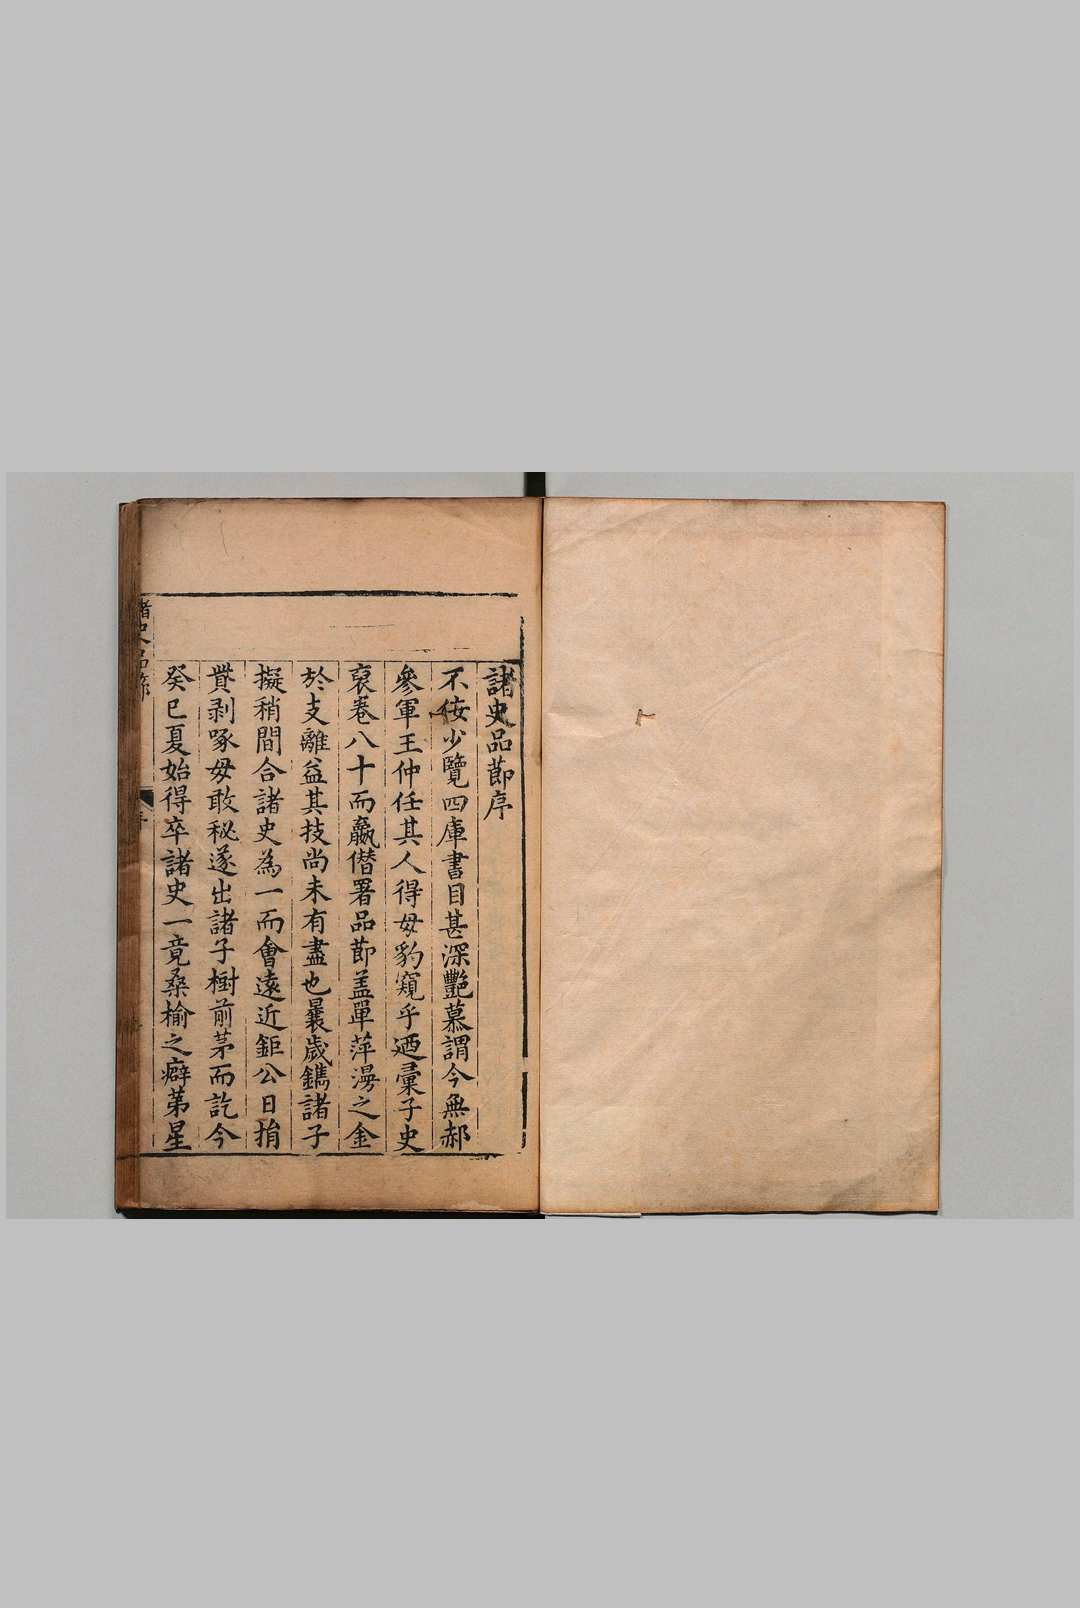 諸史品節序
不佞少覽四庫書目甚深艷慕謂今無郝
參軍王仲任其人得毋豹窺乎迺彚子史
裒卷八十而贏僣署品節盖單萍漫之金
於支離益其技尚未有盡也曩歲鐫諸子
擬稍間合諸史為一而會遠近鉅公日捐
貲剥啄毋敢秘遂出諸子樹前茅而訖今
癸巳夏始得卒諸史一竟桑榆之癖苐星
諸史品節